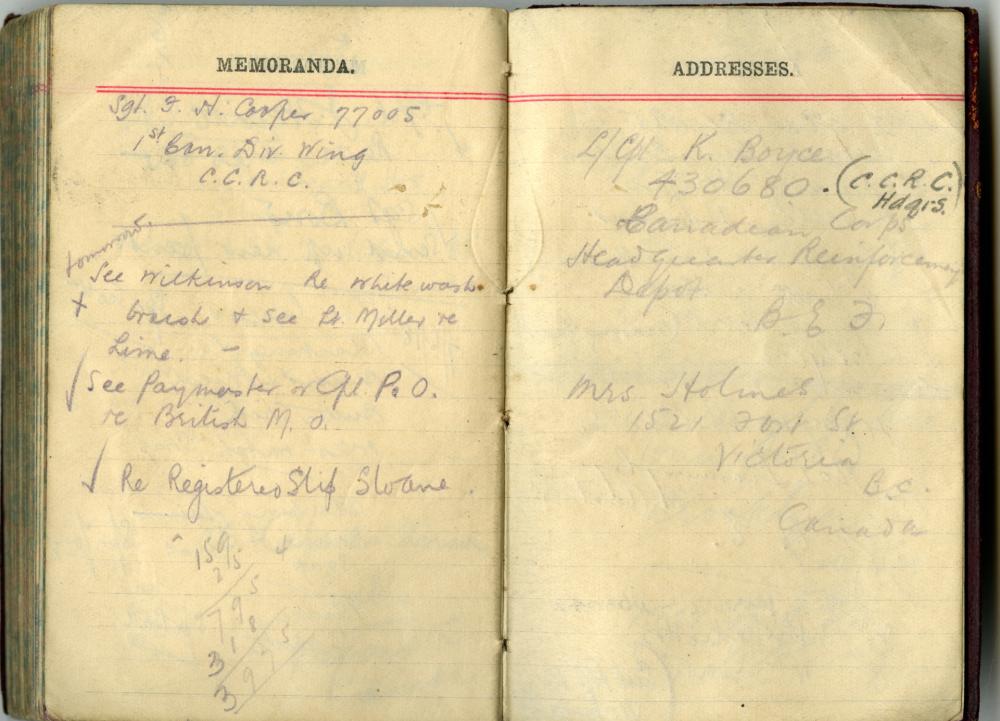 MEMORANDA.
Sgt. F. H. Cooper 77005
1st Can. Div. Wing
C.C.R.C.
tomorrow.
See Wilkinson Re White wash
+ brush + see Lt. Miller re
Lime. -
√ See Paymaster or Cpl. P.O.
re British M. O.
√ Re Registered Slip Sloane.
159
25
795
318
3975
ADDRESSES.
L/Cpl K. Boyce
430680. (C.C.R.C.
Hdqrs.)
Canadian Corps
Headquarter Reinforcement
Depot.
B E F.
Mrs Holmes
1521 Fort St.
Victoria
B.C.
Canada